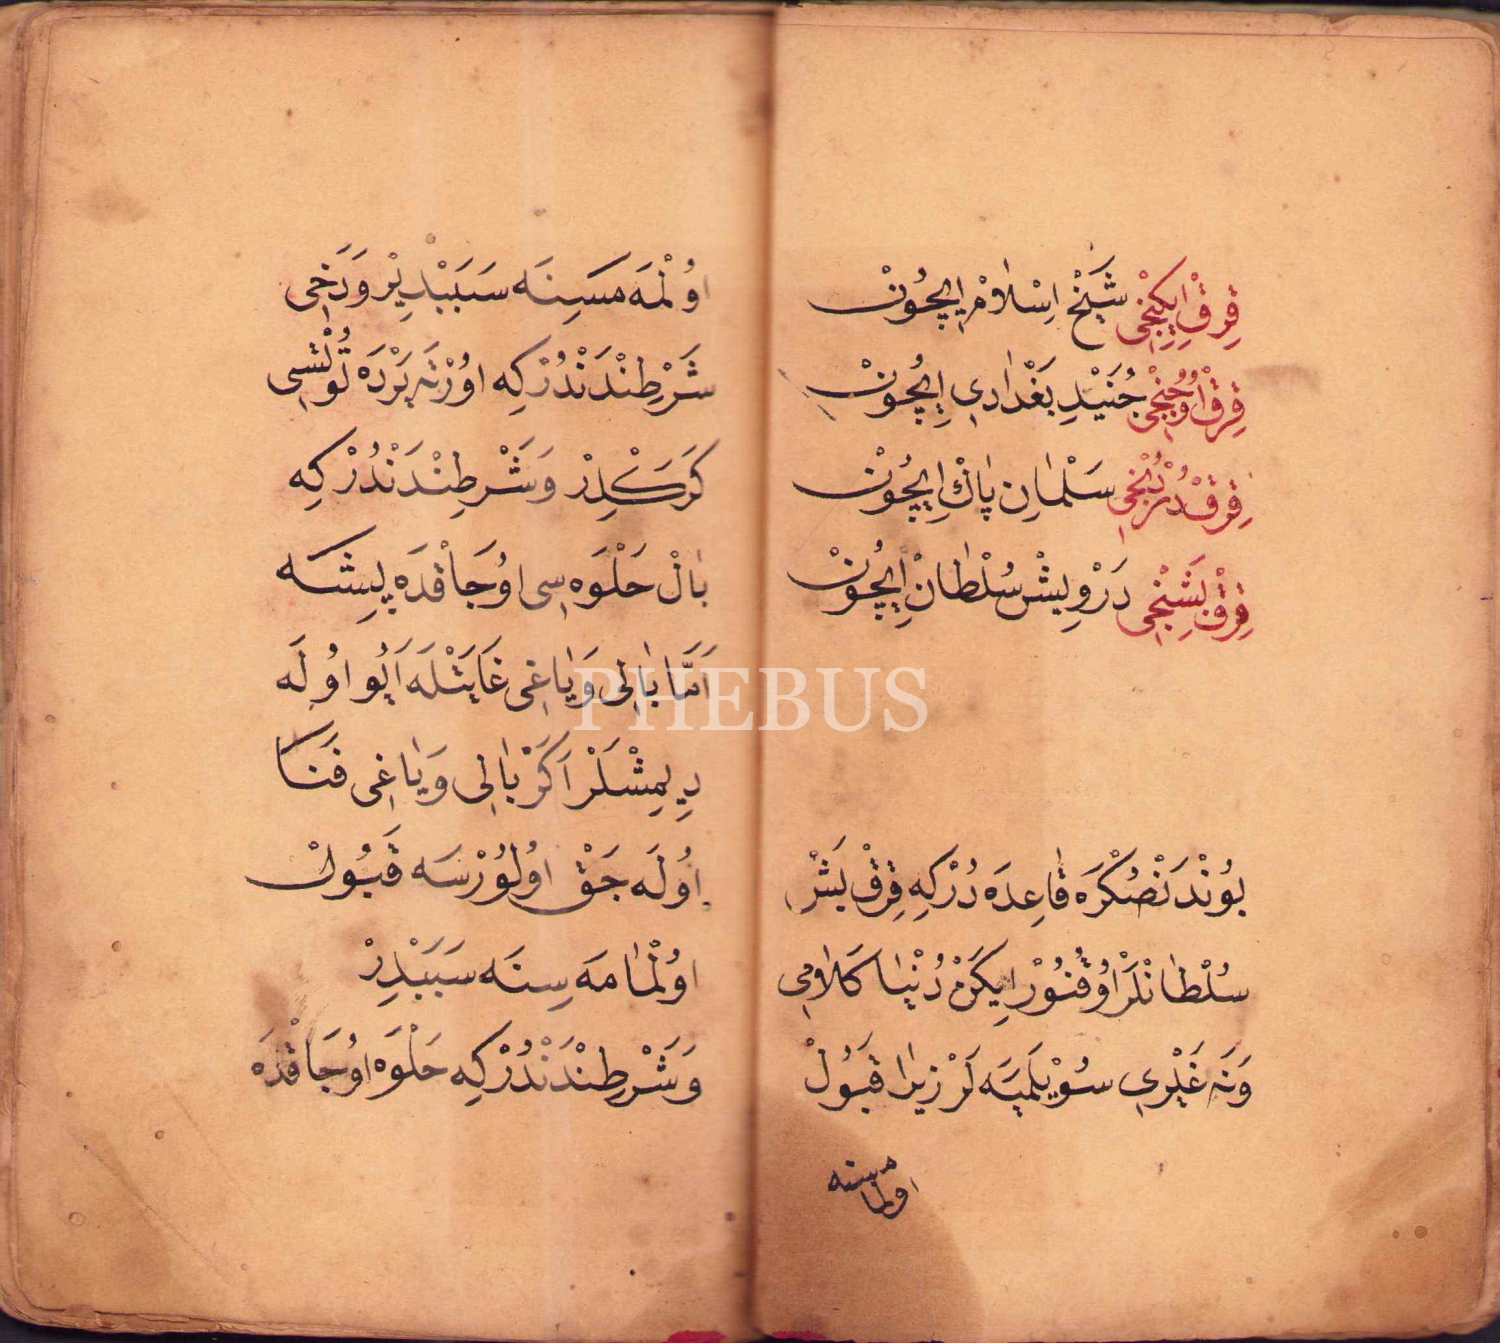 قِرْقْ ایکِنْجِی شَیْخْ اِسْلَامْ اِیچُونْ
قِرْقْ اُوچُنْجِی جُنَیْدِ بَغْدَادِي اِیچُونْ
قِرْقْ دُرْدُنْجِی سَلْمَانِ پَاكْ اِیچُونْ
قِرْقْ بَشِنْجِی دَرْوِیشْ سُلْطَانْ اِیچُونْ
بُونْدَنْصُكْرَه قَاعِدَه دُرْكِه قِرْقْ بَشْ
سُلْطَانْلَرْ اُوقُنُورْ اِیكَنْ دُنْیَا كَلَامِی
وَنَه غَیْرِي سُوْیلَمَیَه لَرْ زِیرَا قَبُولْ
اولمامسنه
اُولْمَه مَسِینَه سَبَبْدِیْر وَدَخِی
شَرْطِنْدَنْدُرْكِه اُورْتَه یَرْدَه تُولْسِی
كَرَكْدِرْ وَشَرْطِنْدَنْدُرْكِه
بَالْ حَلْوَه سِی اُوجَاقْدَه پِیشَه
اَمَّا بَالِی وَیَاغِی غَایَتْلَه اَیُو اُولَه
دِیمِشْلَرْ اَكَرْ بَالِی وَیَاغِی فَنَا
اُولَه جَقْ اُولُورْسَه قَبُولْ
اُولْمَامَه سِنَه سَبَبْدِرْ
وَشَرْطِنْدَنْدُرْكِه حَلْوَه اُوجَاقْدَه
PHEBUS